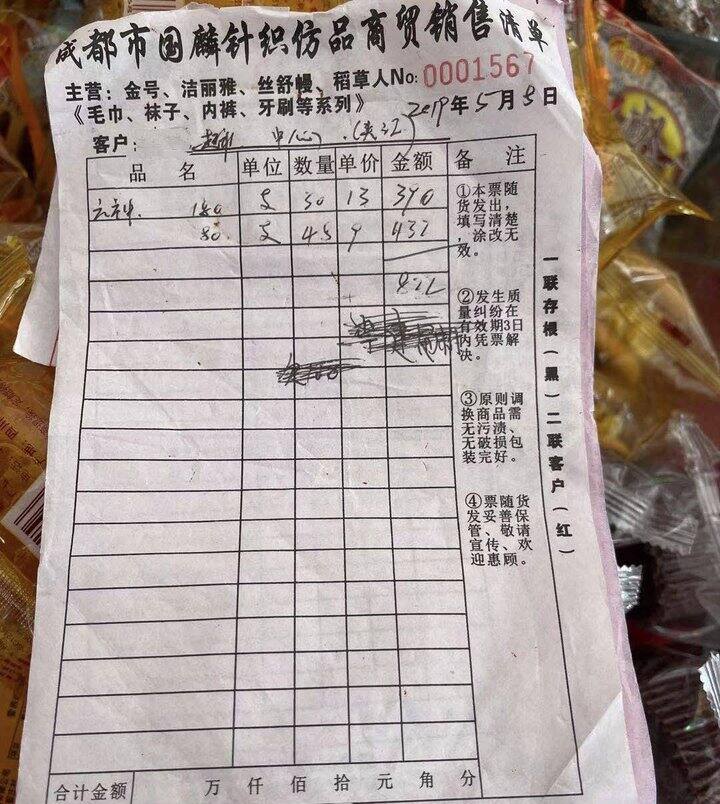 成都市国麟针织仿品商贸销售清单
主营：金号、洁丽雅、丝舒幔、稻草人No:0001567
《毛巾、袜子、内裤、牙刷等系列》 2019年5月5日
客户： 中心(夹江)
品 名 单位 数量 单价 金额 备 注
180 支 30 13 390
80 支 48 9 432
822
①本票随
货发出，
填写清楚
，涂改无
效。
②发生质
量纠纷在
有效期3日
内凭票解
决。
③原则调
换商品需
无污渍、
无破损包
装完好。
④票随货
发妥善保
管、敬请
宣传、欢
迎惠顾。
一联存根（黑）二联客户（红）
合计金额 万 仟 佰 拾 元 角 分